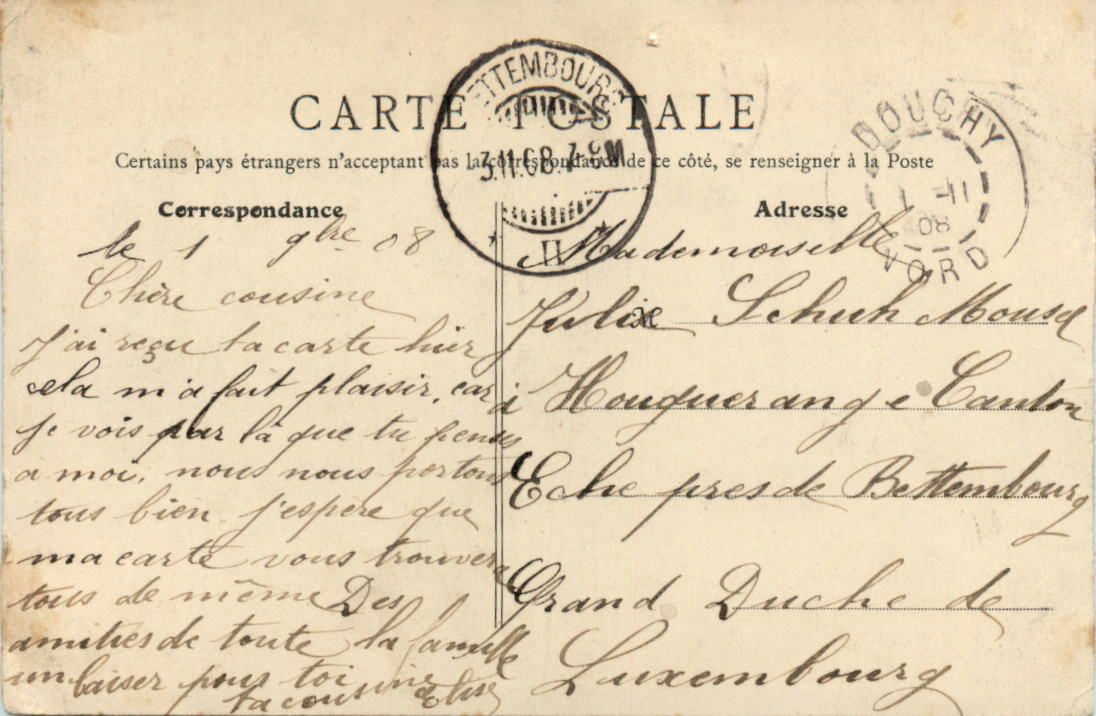 CARTE POSTALE
Certains pays étrangers n'acceptant pas la correspondance de ce côté, se renseigner à la Poste
BETTEMBOURG
3.11.08. 7-8M
II
DOUCHY
1 -11
08
NORD
Correspondance
le 1 9bre 08
Chère cousine
J'ai reçu ta carte hier
cela m'a fait plaisir, car
je vois par là que tu penses
a moi, nous nous portons
tous bien j'espère que
ma carte vous trouvera
tous de même Des
amitiés de toute la famille
un baiser pour toi
ta cousine Elise
Adresse
Mademoiselle
Julie Schuh Mousel
à Houguerange Canton
Eche pres de Bettembourg
Grand Duche de
Luxembourg